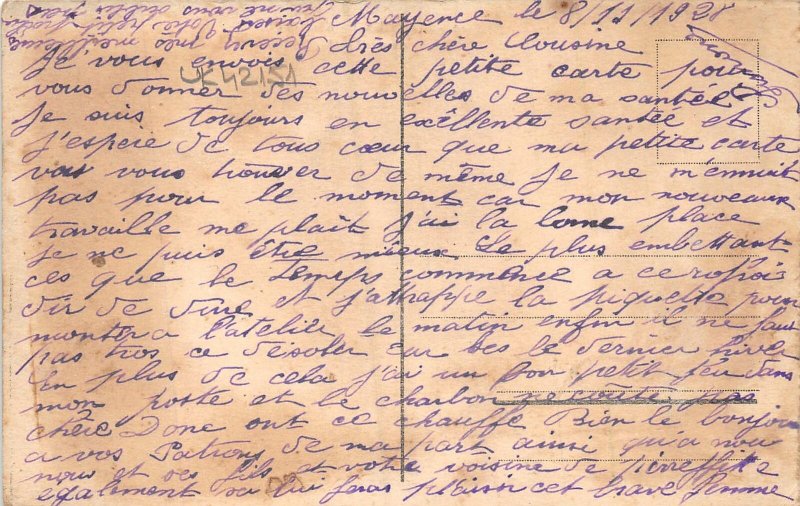 Mayence le 8/11/1928
très chère Cousine
Je vous envois cette petite carte pour
UK42151
vous donner des nouvelles de ma santée
Je suis toujours en exéllente santée et
J'espère de tous cœur que ma petite carte
vas vous trouver de même Je ne m'ennuit
pas pour le moment car mon nouveaux
travaille me plait J'ai la bonne place
Je ne puis être mieux Le plus embettant
ces que le Temps commence a ce
dir de dure et J'attrappe la piquette pour
monter a l'atelier le matin enfin il ne faut
pas tros ce désoler car ses le dernier hive
En plus de cela J'ai un bon petit feu dans
mon poste et le charbon ne coute pas
chère Donc ont ce chauffe Bien le bonjour
a vos Patrons de ma part ainsi qu'a nou
nou et ses fils et votre voisine de
egalement sa lui feras plaisir cet brave femme
Recever
Votre petit